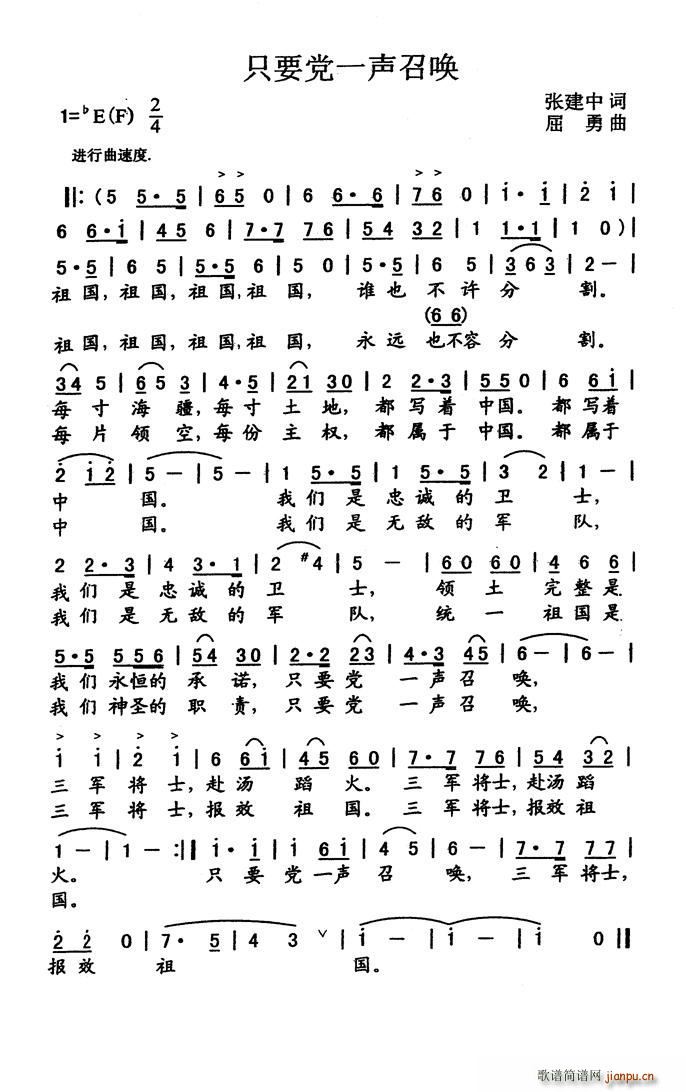 只要党一声召唤
1=♭E(F) 2/4
张建中 词
屈 勇 曲
进行曲速度.
‖:(5 5·5 | 6 5 0 | 6 6·6 | 7 6 0 | i· i | 2 i |
6 6·i | 4 5 6 | 7·7 7 6 | 5 4 3 2 | 1 1·1 | 1 0)|
5·5 | 6 5 | 5·5 6 | 5 0 | 5·5 | 6 5 | 3 6 3 | 2 — |
祖国,祖国,祖国,祖 国, 谁也 不许分 割。
(6 6)
祖国,祖国,祖国,祖 国, 永远 也不容分 割。
3 4 5 | 6 5 3 | 4·5 | 2 1 3 0 | 2 2·3 | 5 5 0 | 6 6 i |
每寸海疆,每寸土地, 都写着中国。都写着
每片领空,每份主权, 都属于中国。都属于
2 i 2 | 5 — | 5 — | 1 5·5 | 1 5·5 | 3 2 | 1 — |
中 国。 我们是忠诚的卫 士,
中 国。 我们是无敌的军 队,
2 2·3 | 4 3·1 | 2 #4 | 5 — | 6 0 6 0 | 4 6 6 |
我们是忠诚的卫 士, 领土完整是
我们是无敌的军 队, 统一祖国是
5·5 5 5 6 | 5 4 3 0 | 2·2 2 3 | 4·3 4 5 | 6 — | 6 — |
我们永恒的承诺,只要党一声召唤,
我们神圣的职责,只要党一声召唤,
i i | 2 i | 6 6 i | 4 5 6 0 | 7·7 7 6 | 5 4 3 2 |
三军将士,赴汤蹈火。三军将士,赴汤蹈
三军将士,报效祖国。三军将士,报效祖
1 — | 1 — :‖ i· i | i 6 i | 4 5 | 6 — | 7·7 7 7 |
火。 只要党一声召 唤, 三军将士,
国。
2 2 0 | 7· 5 | 4 3 ∨ | i — | i — | i 0 ‖
报效 祖 国。
歌谱简谱网
jianpu.cn